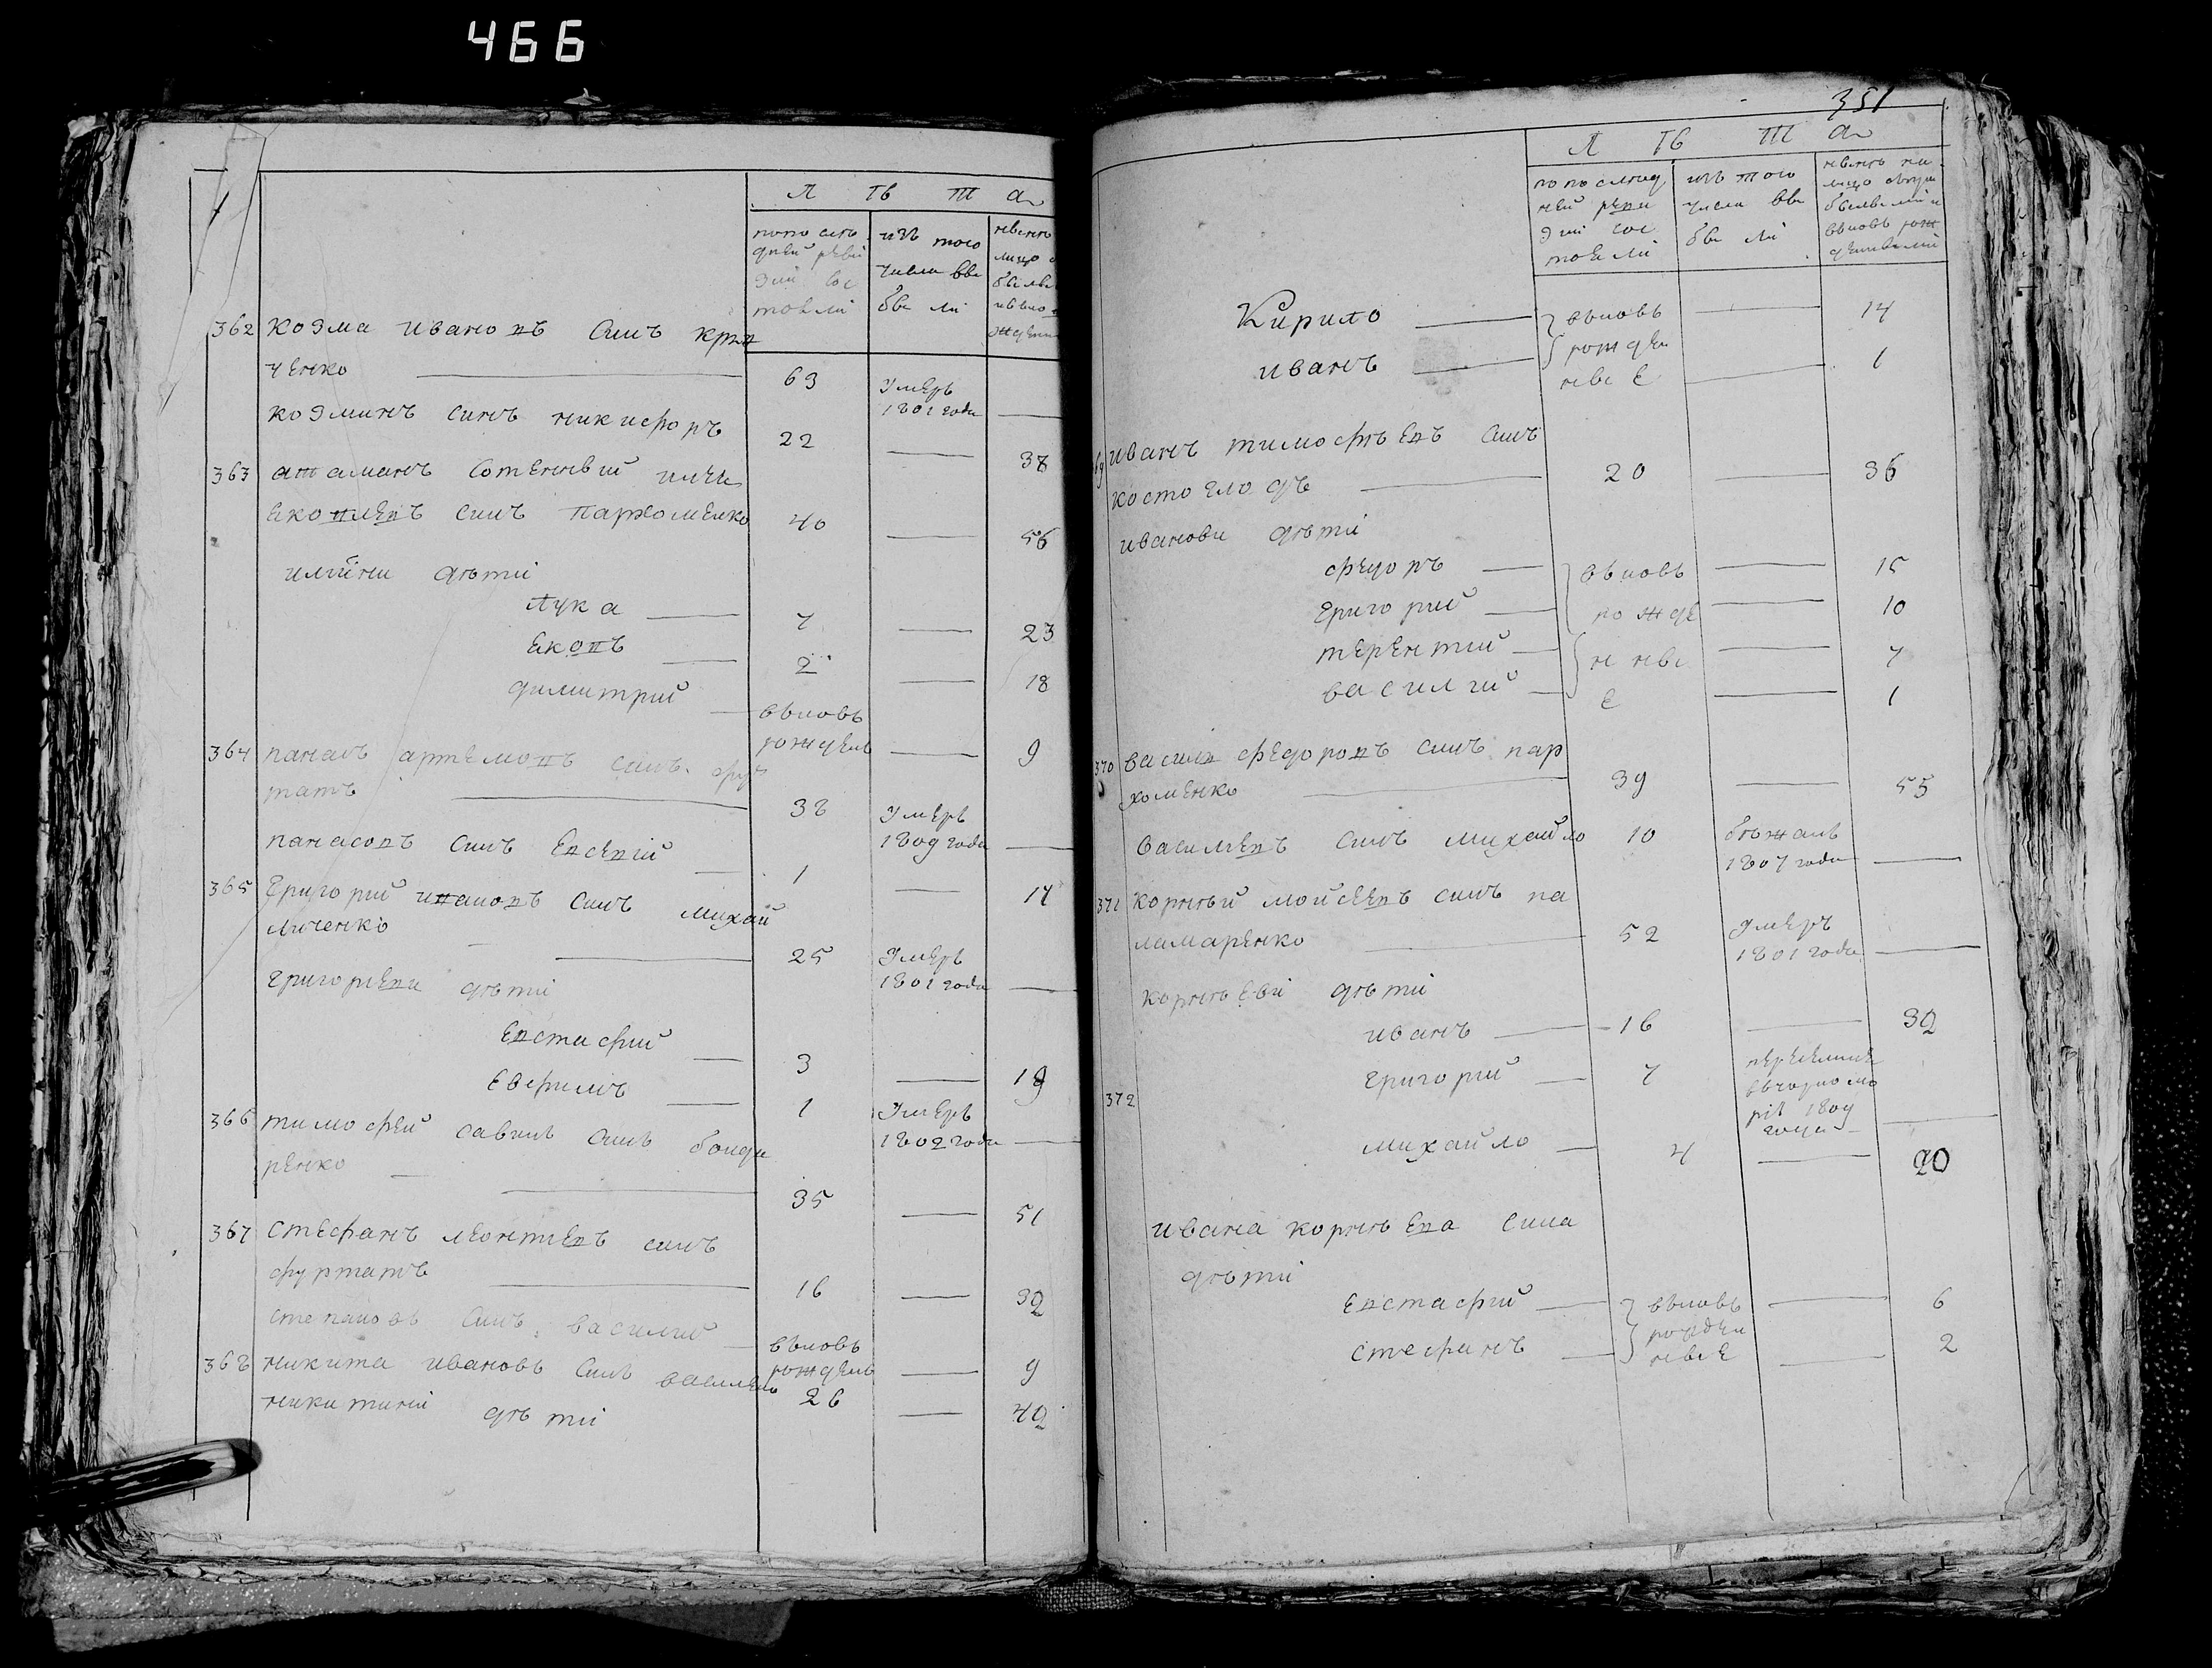 466
Л Ѣ Т А
по после
дней реви
зіи сос
тояли
изъ того
числа вы
были
362 козма иванов синъ
ченко 63 умеръ
1801 года
козминъ синъ никифоръ 22 38
363 атаманъ сотенный илия
яковлевъ синъ пархоменко 40 56
илііни дѣти
лука 7 23
яковъ 2 18
димитрий вьновь
рожденъ 9
364 панасъ артемовъ синъ фур
татъ 38 умеръ
1809 года
панасовъ синъ евсевій 1 17
365 григорий иванов синъ михай
личенко 25 умеръ
1801 года
григориеви дѣти
евстафий 3 19
ефримъ 1 умеръ
1802 года
366 тимофей савинъ синъ бонда
ренко 35 51
367 стефанъ леонтиевъ синъ
фуртатъ 16 32
степановъ синъ василий вьновь
рожденъ 9
368 никита ивановъ синъ василенко 26 42
никитині дѣти
351
Л Ѣ Т А
по послѣд
ней реви
зіи сос
тояли
изъ того
числа вы
были
нынѣ на
лицо
вьновь рож
Кирило вьновь 14
иванъ рожден
ные 1
69 иванъ тимофѣевъ синъ
костоглодъ 20 36
иванови дѣти
федоръ вьновь 15
григорий рожде 10
терентий нны 7
василий е 1
370 васили федоровъ синъ пар
хоменко 39 55
василиевъ синъ михайло 10 бѣжалъ
1807 года
371 корнѣй мойсеевъ синъ па
ламаренко 52 умеръ
1801 года
корнѣеві дѣти
иванъ 16 32
372 григорий 7
1809
года
михайло 4 20
ивана корнѣева сина
дѣти
евстафий вьновь 6
стефанъ рожден
ные 2